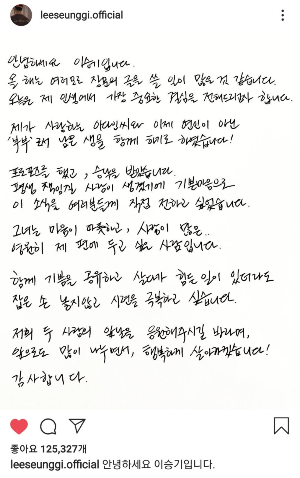 leeseunggi.official
안녕하세요 이승기입니다.
올 해는 여러모로 장문의 글을 쓸 일이 많은 것 같습니다.
오늘은 제 인생에서 가장 중요한 결심을 전해드리고자 합니다.
제가 사랑하는 이다인씨와 이제 연인이 아닌
'부부'로서 남은 생을 함께 하기로 하였습니다!
프로포즈를 했고, 승낙을 받았습니다.
평생 책임질 사람이 생겼기에 기쁜마음으로
이 소식을 여러분들께 직접 전하고 싶었습니다.
그녀는 마음이 따뜻하고, 사랑이 많은..
영원히 제 편에 두고 싶은 사람입니다.
함께 기쁨을 공유하고 살다가 힘든 일이 있더라도
잡은 손 놓지않고 시련을 극복하고 싶습니다.
저희 두 사람의 앞날을 응원해주시길 바라며,
앞으로도 많이 나누면서, 행복하게 살아가겠습니다!
감사합니다.
좋아요 125,327개
leeseunggi.official 안녕하세요 이승기입니다.